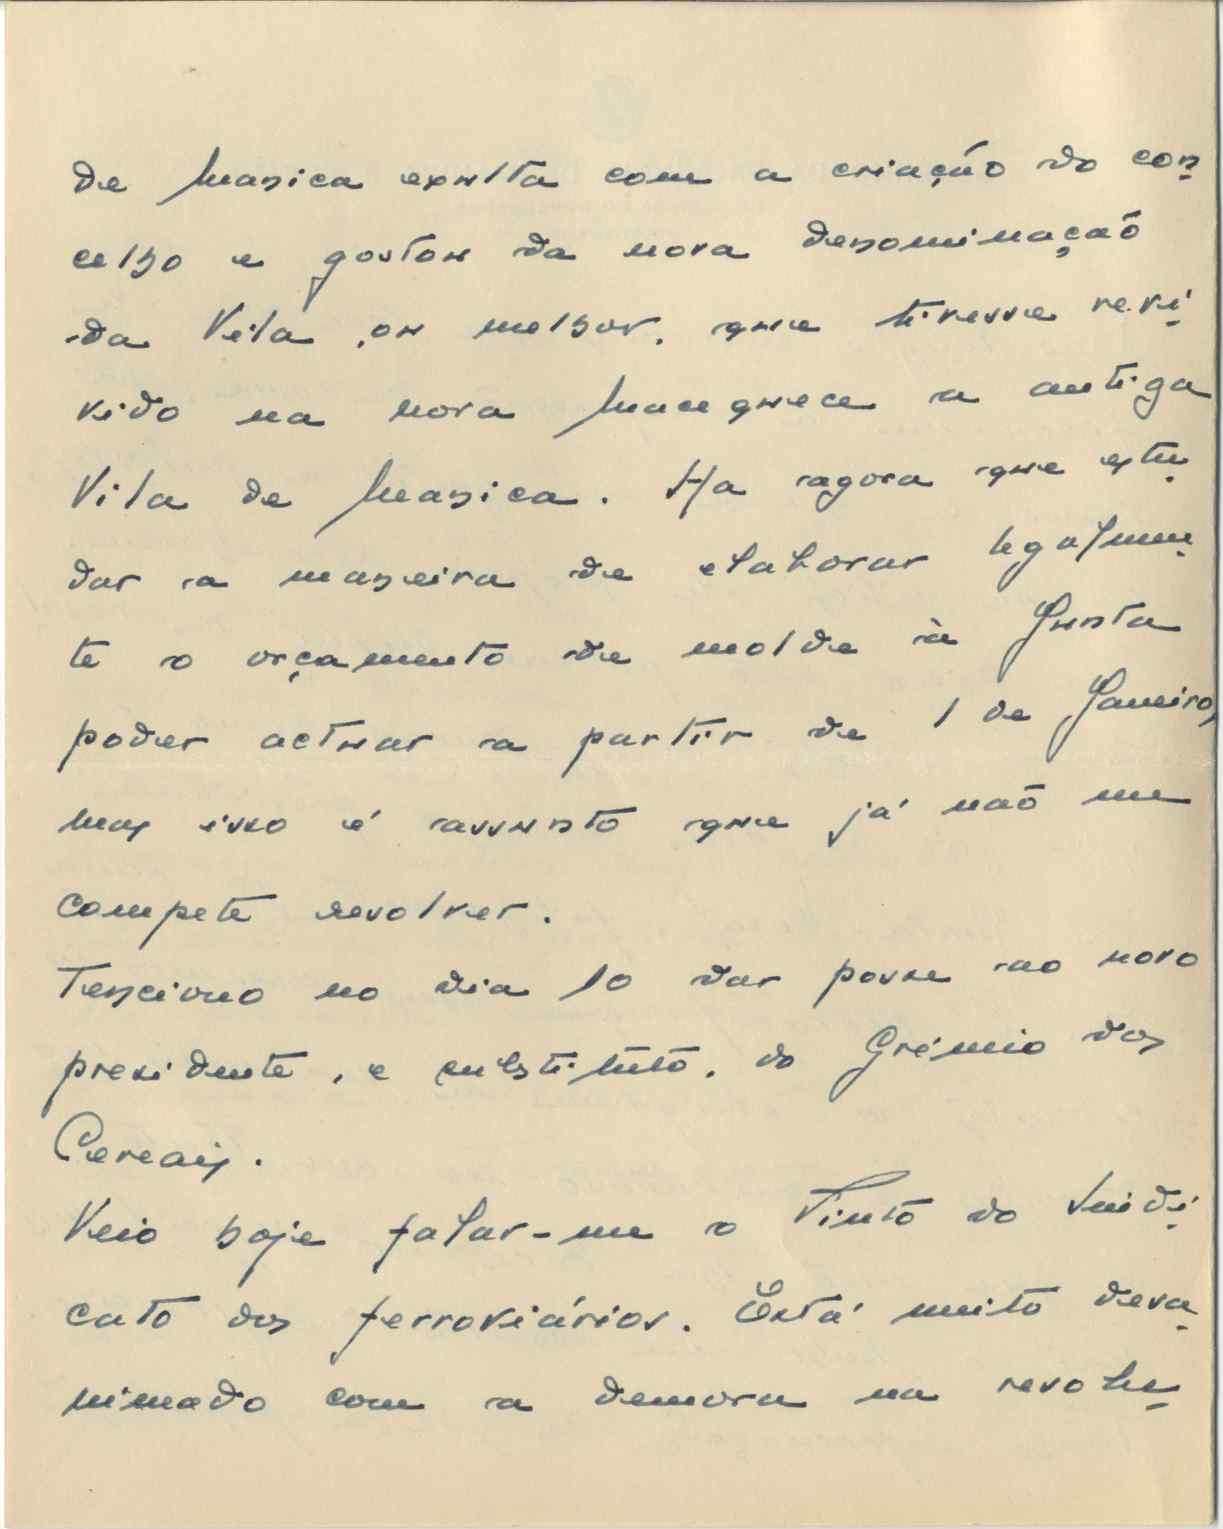 de Manica exulta com a criação do con-
celho e gostou da nova denominação
da Vila, ou melhor, que tivesse revi-
vido na nova Macequece a antiga
Vila de Manica. Ha agora que estu-
dar a maneira de elaborar legalmen-
te o orçamento de molde à Junta
poder actuar a partir de 1 de Janeiro,
mas isso é assunto que já não me
compete resolver.
Tenciono no dia 10 dar posse ao novo
presidente, e substituto, do Grémio dos
Cereais.
Veio hoje falar-me o Pinto do Sindi-
cato dos ferroviários. Está muito desa-
nimado com a demora na resolu-